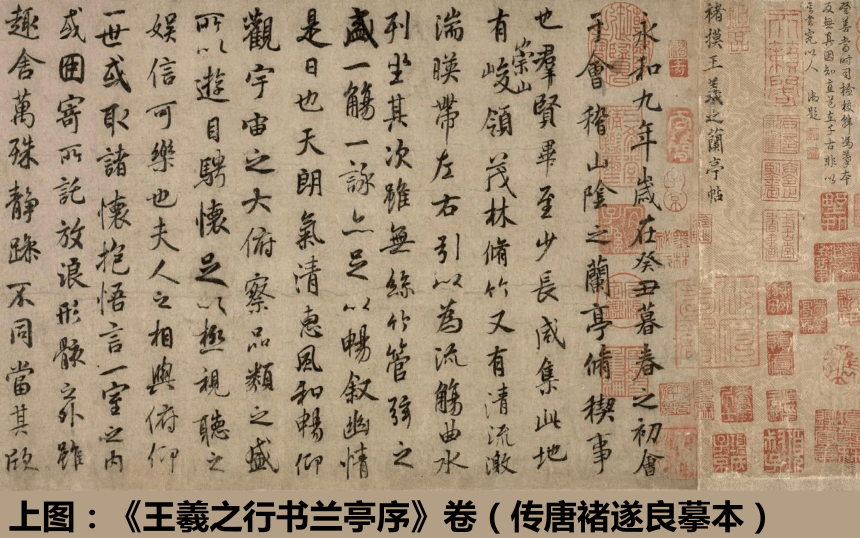 褚摸王羲之蘭亭帖
永和九年歲在癸丑暮春之初會
于會稽山陰之蘭亭脩稧事
也羣賢畢至少長咸集此地
有崇山峻領茂林脩竹又有清流激
湍暎帶左右引以為流觴曲水
列坐其次雖無絲竹管弦之
盛一觴一詠亦足以暢叙幽情
是日也天朗氣清惠風和暢仰
觀宇宙之大俯察品類之盛
所以遊目騁懷足以極視聽之
娛信可樂也夫人之相與俯仰
一世或取諸懷抱悟言一室之內
或因寄所託放浪形骸之外雖
趣舍萬殊静躁不同當其欣
上图：《王羲之行书兰亭序》卷（传唐褚遂良摹本）